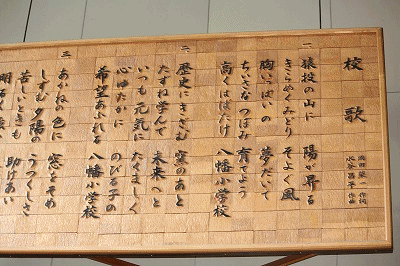 校歌
岡田 栄一 作詞
水谷 昌平 作曲
一
猿投の山に 陽が昇る
きらめくみどり そよぐ風
胸いっぱいの 夢だいて
ちいさなつぼみ 育てよう
高くはばたけ 八幡小学校
二
歴史にきざむ 窯のあと
たずね学んで 未来へと
いつも元気に たくましく
心ゆたかに のびる子の
希望あふれる 八幡小学校
三
あかねの色に 窓をそめ
しずむ夕陽の うつくしさ
苦しいときも 助けあい
明るく